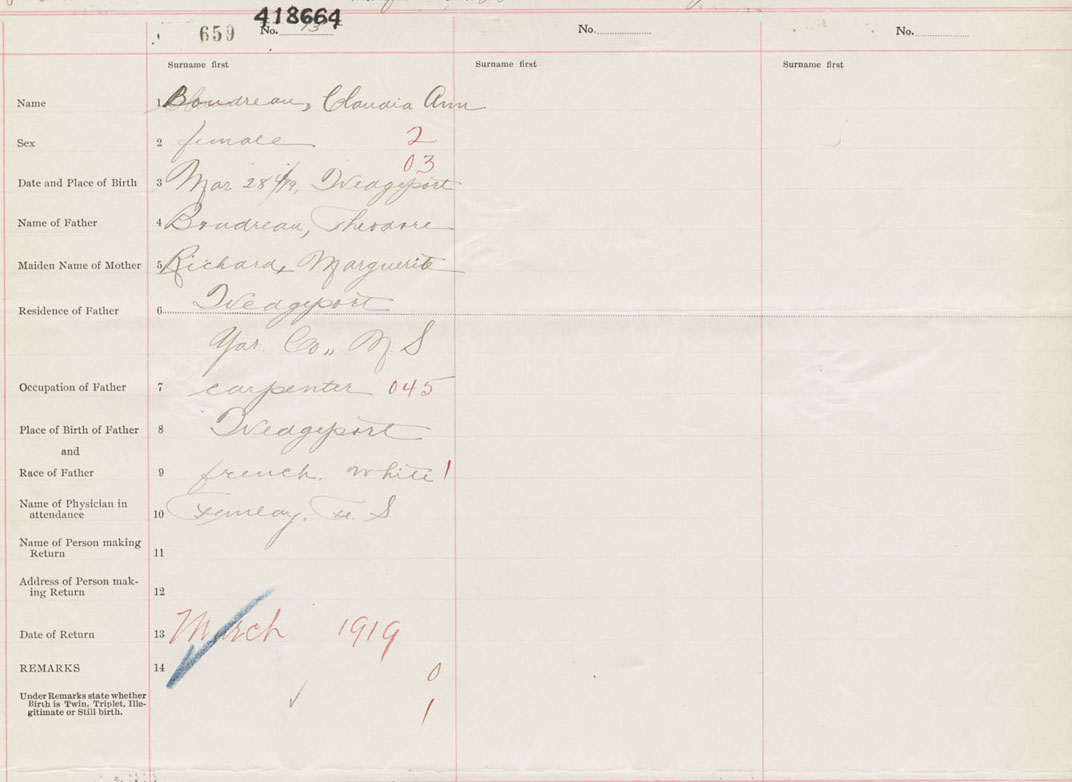 418664
659 No. 73 No. No.
Surname first Surname first Surname first
Name 1 Boudreau, Claudia Ann
Sex 2 female 2
03
Date and Place of Birth 3 Mar 28/19, Wedgeport
Name of Father 4 Boudreau, Theodore
Maiden Name of Mother 5 Richard, Marguerite
Residence of Father 6 Wedgeport
Yar. Co., N S
Occupation of Father 7 carpenter 045
Place of Birth of Father 8 Wedgeport
and
Race of Father 9 french. white 1
Name of Physician in
attendance 10 S
Name of Person making
Return 11
Address of Person mak-
ing Return 12
Date of Return 13 March 1919
REMARKS 14 0
Under Remarks state whether
Birth is Twin, Triplet, Ille-
gitimate or Still birth. 1